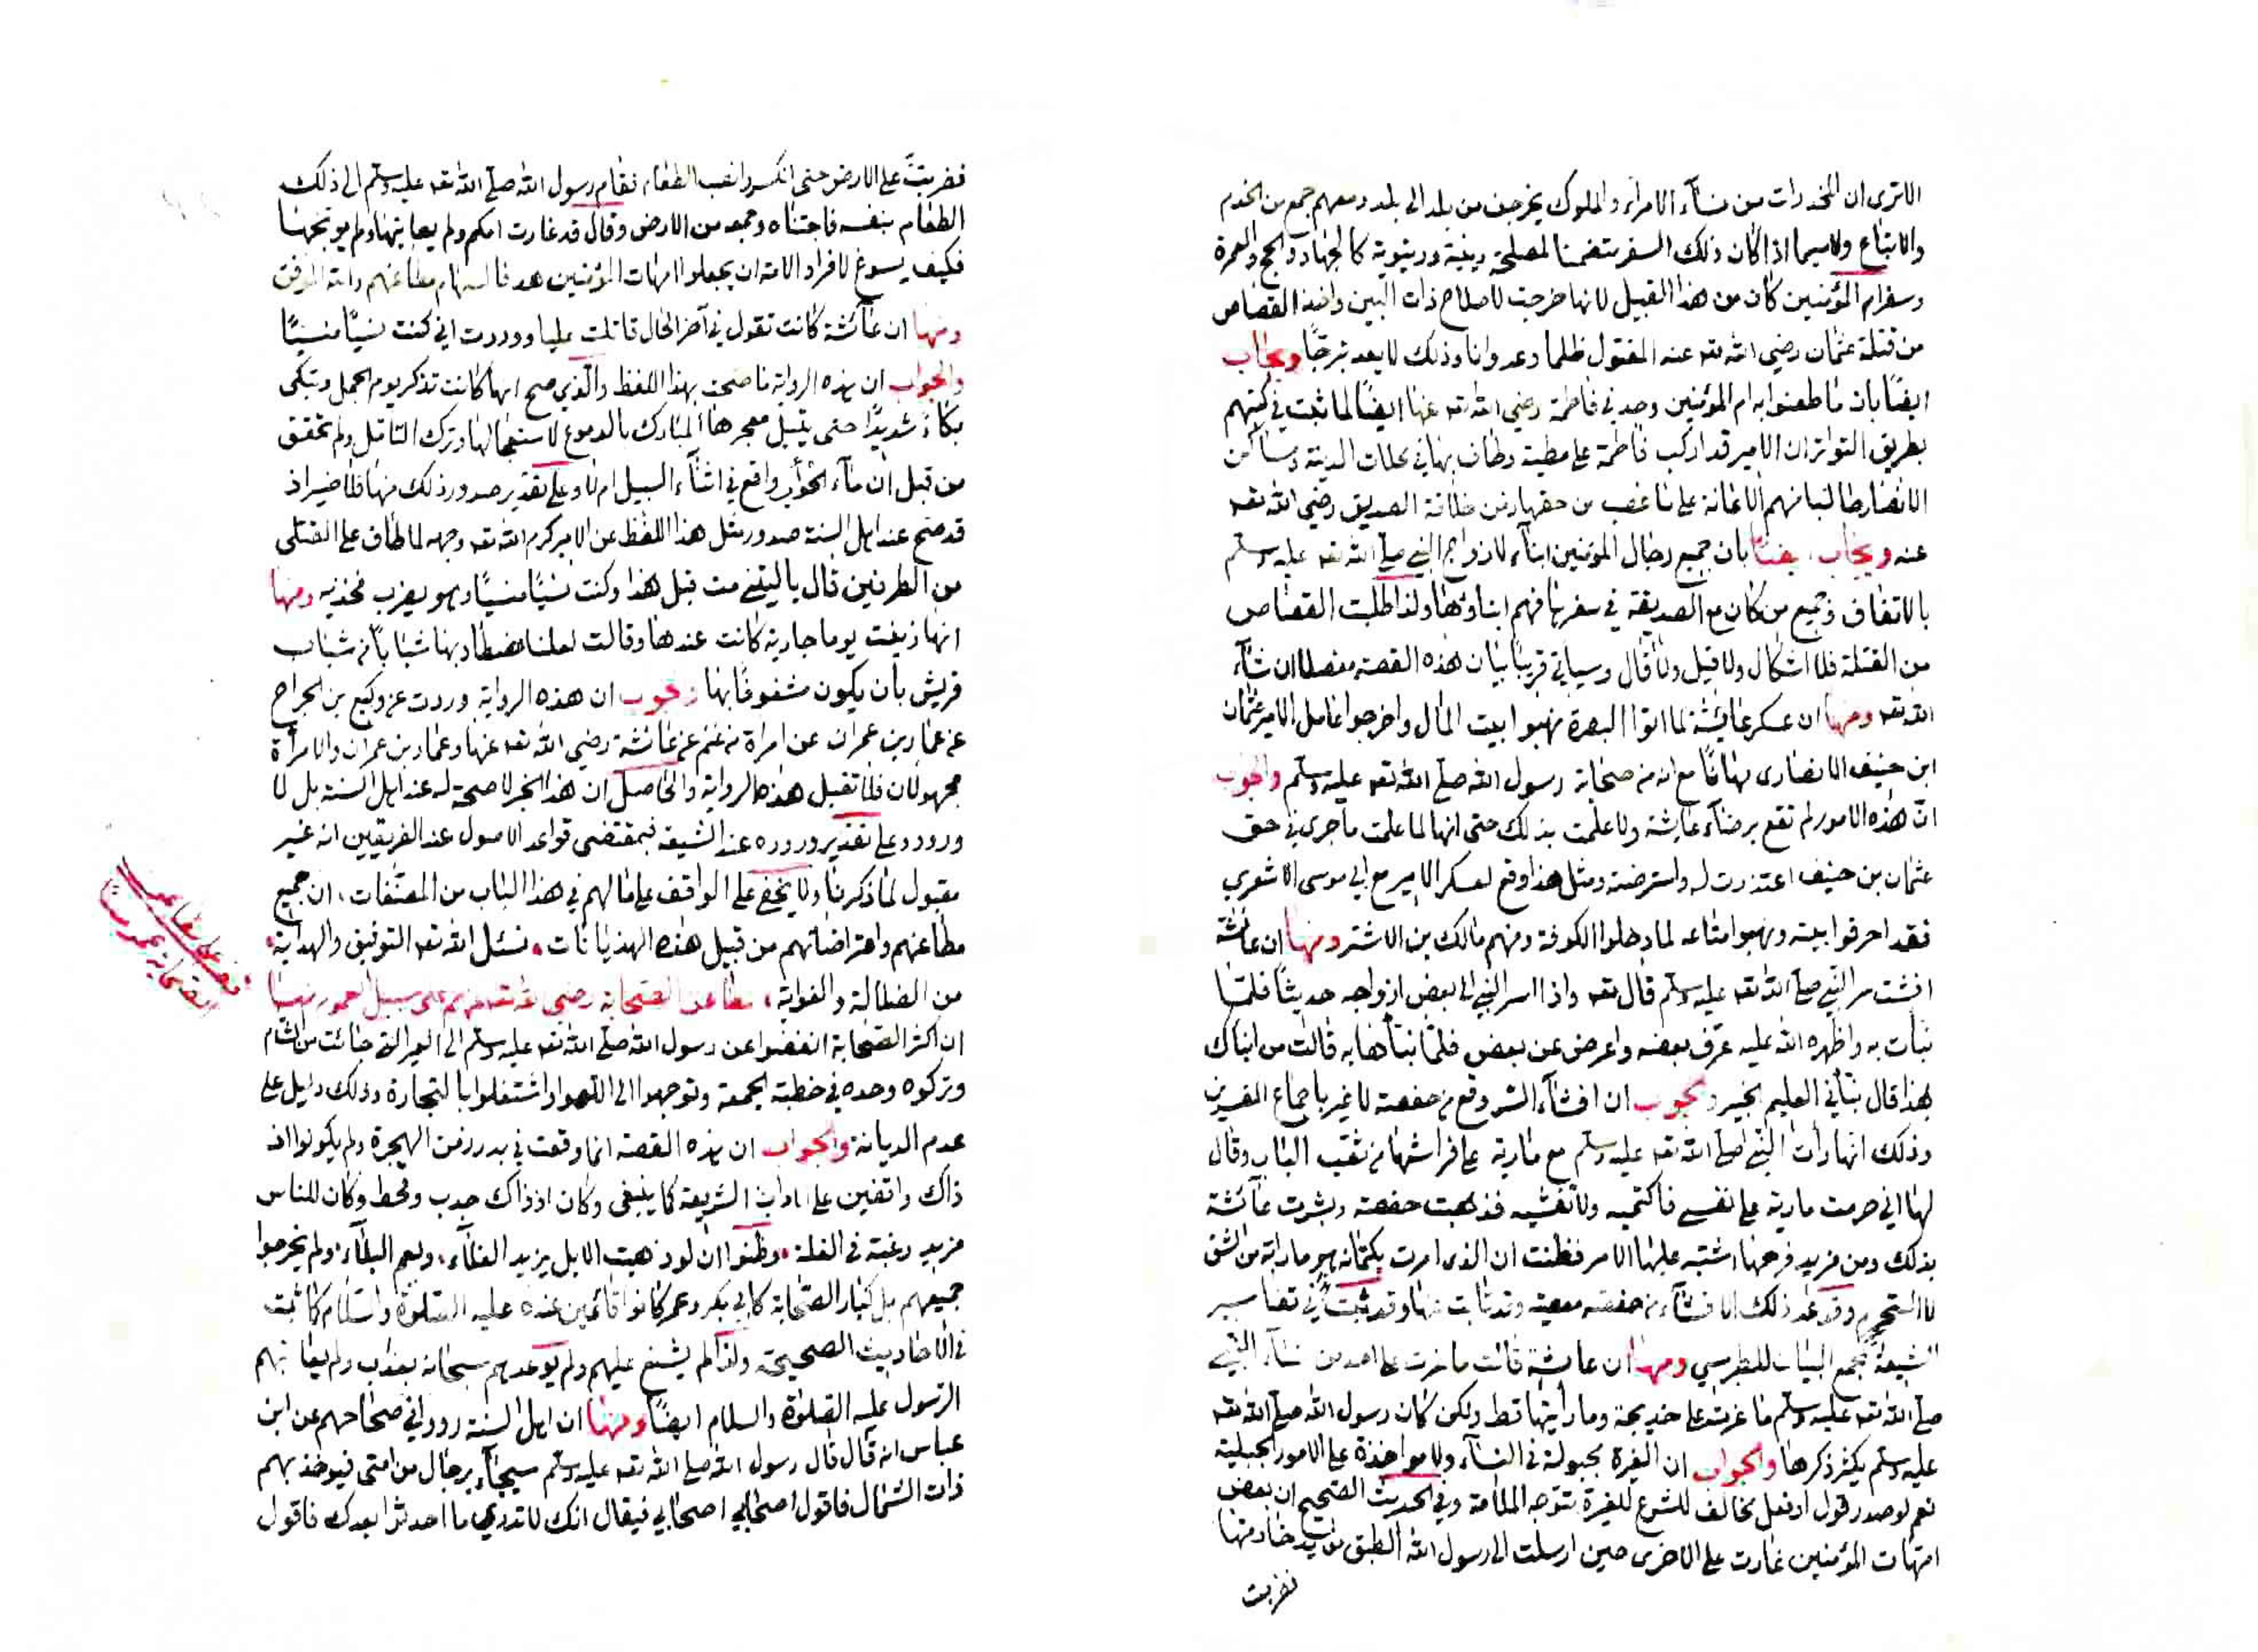 الاترى ان المخدرات من نسآء الامرآء والملوك يخرجن من بلد الى بلد ومعهم جمع من الخدم
والاتباع ولاسيما اذا كان ذلك السفر متضمنا لمصلحة دينية ودنيوية كالجهاد والحج والعمرة
وسفر ام المؤمنين كان من هذا القبيل لانها خرجت لاصلاح ذات البين واخذ القصاص
من قتلة عثمان رضي الله تعه عنه المقتول ظلما وعدوانا وذلك لا يعد تبرجًا ويجاب
ايضًا بان ما طعنوا به ام المؤمنين وجد في فاطمة رضي الله تعه عنها ايضًا لما ثبت في كتبهم
بطريق التواتر ان الامير قد اركب فاطمة على مطية وطاف بها في محلات المدينة ومساكن
الانصار طالبا منهم الاعانة على ما غصب من حقها زمن خلافة الصديق رضي الله تعه
عنه ويجاب ايضًا بان جميع رجال المؤمنين ابنآء لازواج النبي صلى الله تعه عليه وسلم
بالاتفاق وجميع من كان مع الصديقة في سفرها فهم ابناؤها ولذا طلبت القصاص
من القتلة فلا اشكال ولا قيل ولا قال وسياتي قريبًا بيان هذه القصة مفصلا ان شآء
الله تعه ومنها ان عسكر عايشة لما اتوا البصرة نهبوا بيت المال واخرجوا عامل الامير عثمان
ابن حنيف الانصارى مهانًا مع انه من صحابة رسول الله صلى الله تعه عليه وسلم والجوب
ان هذه الامور لم تقع برضآء عايشة ولا علمت بذلك حتى انها لما علمت ما جرى في حق
عثمان بن حنيف اعتذرت له واسترضته ومثل هذا وقع لعسكر الامير مع ابي موسى الاشعري
فقد احرقوا بيته ونهبوا متاعه لما دخلوا الكوفة ومنهم مالك بن الاشتر ومنها ان عائشة
افشت سر النبي صلى الله تعه عليه وسلم قال تعه واذا اسر النبي الى بعض ازواجه حديثًا فلمّا
نبأت به واظهره الله عليه عرّف بعضه واعرض عن بعض فلمّا نبّأها به قالت من انباك
هذا قال نبأني العليم الخبير والجوب ان افشآء السر وقع من حفصة لا غير باجماع المفسرين
وذلك انها رأت النبي صلى الله تعه عليه وسلم مع مارية على فراشها من ثقب الباب وقال
لها اني حرمت مارية على نفسي فاكتميه ولا تفشيه فذهبت حفصة وبشرت عآئشة
بذلك ومن مزيد فرحها اشتبه عليها الامر فظنت ان الذى امرت بكتمانه هو ما راته من الشق
لا التحريم وقد عد ذلك الافشآء من حفصة معصية وقد تابت عنها وقد ثبت في تفاسير
الشيعة كمجمع البيان للطبرسي ومنها ان عايشة قالت ما غرت على احد من نسآء النبي
صلى الله تعه عليه وسلم ما غرت على خديجة وما رأيتها قط ولكن كان رسول الله صلى الله تعه
عليه وسلم يكثر ذكرها والجواب ان الغيرة مجبولة في النسآء ولا مواخذة على الامور الجبلية
نعم لو صدر قول او فعل مخالف للشرع للغيرة تتوجه الملامة وفي الحديث الصحيح ان بعض
امهات المؤمنين غارت على الاخرى حين ارسلت الى رسول الله الطبق من يد خادمتها
فضربت
فضربت على الارض حتى انكسر وانصب الطعام فقام رسول الله صلى الله تعه عليه وسلم الى ذلك
الطعام بنفسه فاجتناه وجمعه من الارض وقال قد غارت امكم ولم يعاتبها ولم يوبخها
فكيف يسوغ لافراد الامة ان يجعلوا امهات المؤمنين هدفا لسهام مطاعنهم والله الموفق
ومنها ان عآئشة كانت تقول في آخر الحال قاتلت عليا ووددت اني كنت نسيًا منسيًا
والجواب ان هذه الرواية ما صحت بهذا اللفظ والذي صح انها كانت تذكر يوم الجمل وتبكى
بكآء شديدًا حتى يبتل معجرها المبارك بالدموع لاستعجالها وترك التأمل ولم تحقق
من قبل ان مآء الحوأب واقع في اثنآء السبيل ام لا وعلى تقدير صدور ذلك منها فلا ضير اذ
قد صح عند اهل السنة صدور مثل هذا اللفظ عن الامير كرم الله تعه وجهه لما طاف على القتلى
من الطرفين قال ياليتني مت قبل هذا وكنت نسيًا منسيًا وهو يضرب فخذيه ومنها
انها زينت يوما جارية كانت عندها وقالت لعلنا نصطاد بها شابا من شباب
قريش بأن يكون مشغوفًا بها والجوب ان هذه الرواية وردت عن وكيع بن الجراح
عن عمار بن عمران عن امراة من غنم عن عائشة رضي الله تعه عنها وعمار بن عمران والامرأة
مجهولان فلا تقبل هذه الرواية والحاصل ان هذا الخبر لا صحة له عند اهل السنة بل لا
ورود وعلى تقدير وروده عند الشيعة فبمقتضى قواعد الاصول عند الفريقين انه غير
مقبول لما ذكرنا ولا يخفى على الواقف على ما لهم في هذا الباب من المصنّفات، ان جميع
مطاعنهم واعتراضاتهم من قبيل هذه الهذيانات. نسئل الله تعه التوفيق والهداية.
من الضلالة والغواية، مطاعن الصحابة رضي الله تعه عنهم على سبيل العموم منها
ان اكثر الصحابة انفضوا عن رسول الله صلى الله تعه عليه وسلم الى العير التي جائت من الشام
وتركوه وحده في خطبة الجمعة وتوجهوا الى اللهو واشتغلوا بالتجارة وذلك دليل على
عدم الديانة والجواب ان هذه القصة انما وقعت في بدء زمن الهجرة ولم يكونوا اذ
ذاك واقفين على اداب الشريعة كما ينبغى وكان اذ ذاك جدب وقحط وكان للناس
مزيد رغبة في الغلة. وظنوا ان لو ذهبت الابل يزيد الغلآء. ويعم البلآء. ولم يخرجوا
جميعهم بل كبار الصحابة كابي بكر وعمر كانوا قائمين عنده عليه الصلوة والسلام كما ثبت
في الاحاديث الصحيحة ولذا لم يشنع عليهم ولم يوعدهم سبحانه بعذاب ولم يعاتبهم
الرسول عليه الصلوة والسلام ايضًا ومنها ان اهل السنة رووا في صحاحهم عن ابن
عباس انه قال قال رسول الله صلى الله تعه عليه وسلم سيجآء برجال من امتى فيوخذ بهم
ذات الشمال فاقول اصحابي اصحابي فيقال انك لا تدري ما احدثوا بعدك فاقول